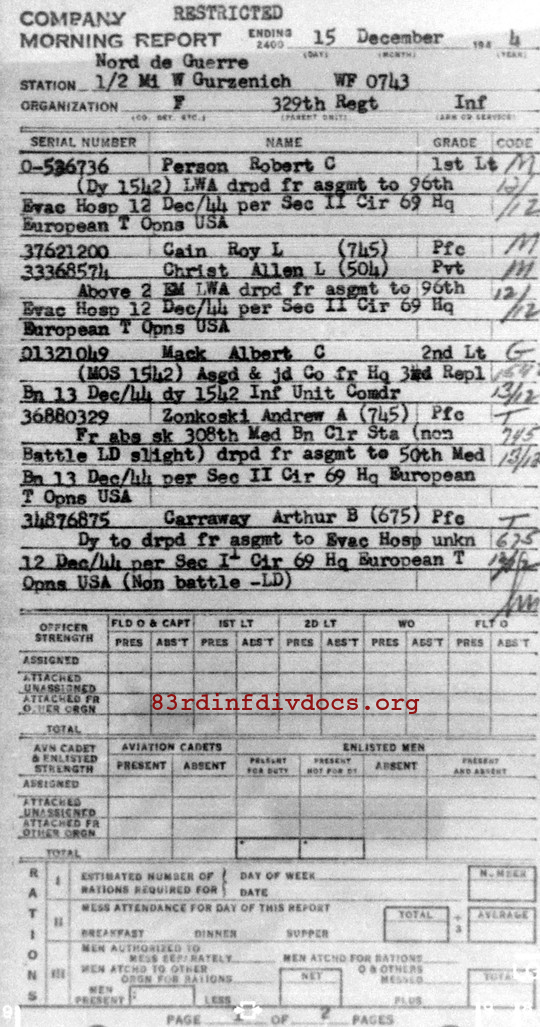 COMPANY RESTRICTED
MORNING REPORT ENDING 2400 15 December 194 4
(DAY) (MONTH) (YEAR)
Nord de Guerre
STATION 1/2 Mi W Gurzenich WF 0743
ORGANIZATION F 329th Regt Inf
(CO. DET. ETC.) (PARENT UNIT) (ARM OR SERVICE)
SERIAL NUMBER NAME GRADE CODE
O-526736 Person Robert C 1st Lt M
(Dy 1542) LWA drpd fr asgmt to 96th 12/
Evac Hosp 12 Dec/44 per Sec II Cir 69 Hq /12
European T Opns USA
37621200 Cain Roy L (745) Pfc M
33368574 Christ Allen L (504) Pvt M
Above 2 EM LWA drpd fr asgmt to 96th 12/
Evac Hosp 12 Dec/44 per Sec II Cir 69 Hq /12
European T Opns USA
01321049 Mack Albert C 2nd Lt G
(MOS 1542) Asgd & jd Co fr Hq 3rd Repl 1542
Bn 13 Dec/44 dy 1542 Inf Unit Comdr 13/12
36880329 Zonkoski Andrew A (745) Pfc T
Fr abs sk 308th Med Bn Clr Sta (non 745
Battle LD slight) drpd fr asgmt to 50th Med 13/12
Bn 13 Dec/44 per Sec II Cir 69 Hq European
T Opns USA
34876875 Carraway Arthur B (675) Pfc T
Dy to drpd fr asgmt to Evac Hosp unkn 675
12 Dec/44 per Sec I Cir 69 Hq European T
Opns USA (Non battle -LD)
OFFICER STRENGTH FLD O & CAPT 1ST LT 2D LT WO FLT O
PRES ABS'T PRES ABS'T PRES ABS'T PRES ABS'T PRES ABS'T
ASSIGNED
ATTACHED UNASSIGNED
ATTACHED FR OTHER ORGN
83rdinfdivdocs.org
TOTAL
AVN CADET & ENLISTED STRENGTH AVIATION CADETS ENLISTED MEN
PRESENT ABSENT PRESENT FOR DUTY PRESENT NOT FOR DY ABSENT PRESENT AND ABSENT
ASSIGNED
ATTACHED UNASSIGNED
ATTACHED FR OTHER ORGN
TOTAL
RATIONS
I ESTIMATED NUMBER OF RATIONS REQUIRED FOR DAY OF WEEK NUMBER
DATE
II MESS ATTENDANCE FOR DAY OF THIS REPORT TOTAL ÷ 3 AVERAGE
BREAKFAST DINNER SUPPER
III MEN AUTHORIZED TO MESS SEPARATELY MEN ATCHD FOR RATIONS
MEN ATCHD TO OTHER ORGN FOR RATIONS NET O & OTHERS MESSED TOTAL
MEN PRESENT LESS PLUS
PAGE 1 OF 2 PAGES